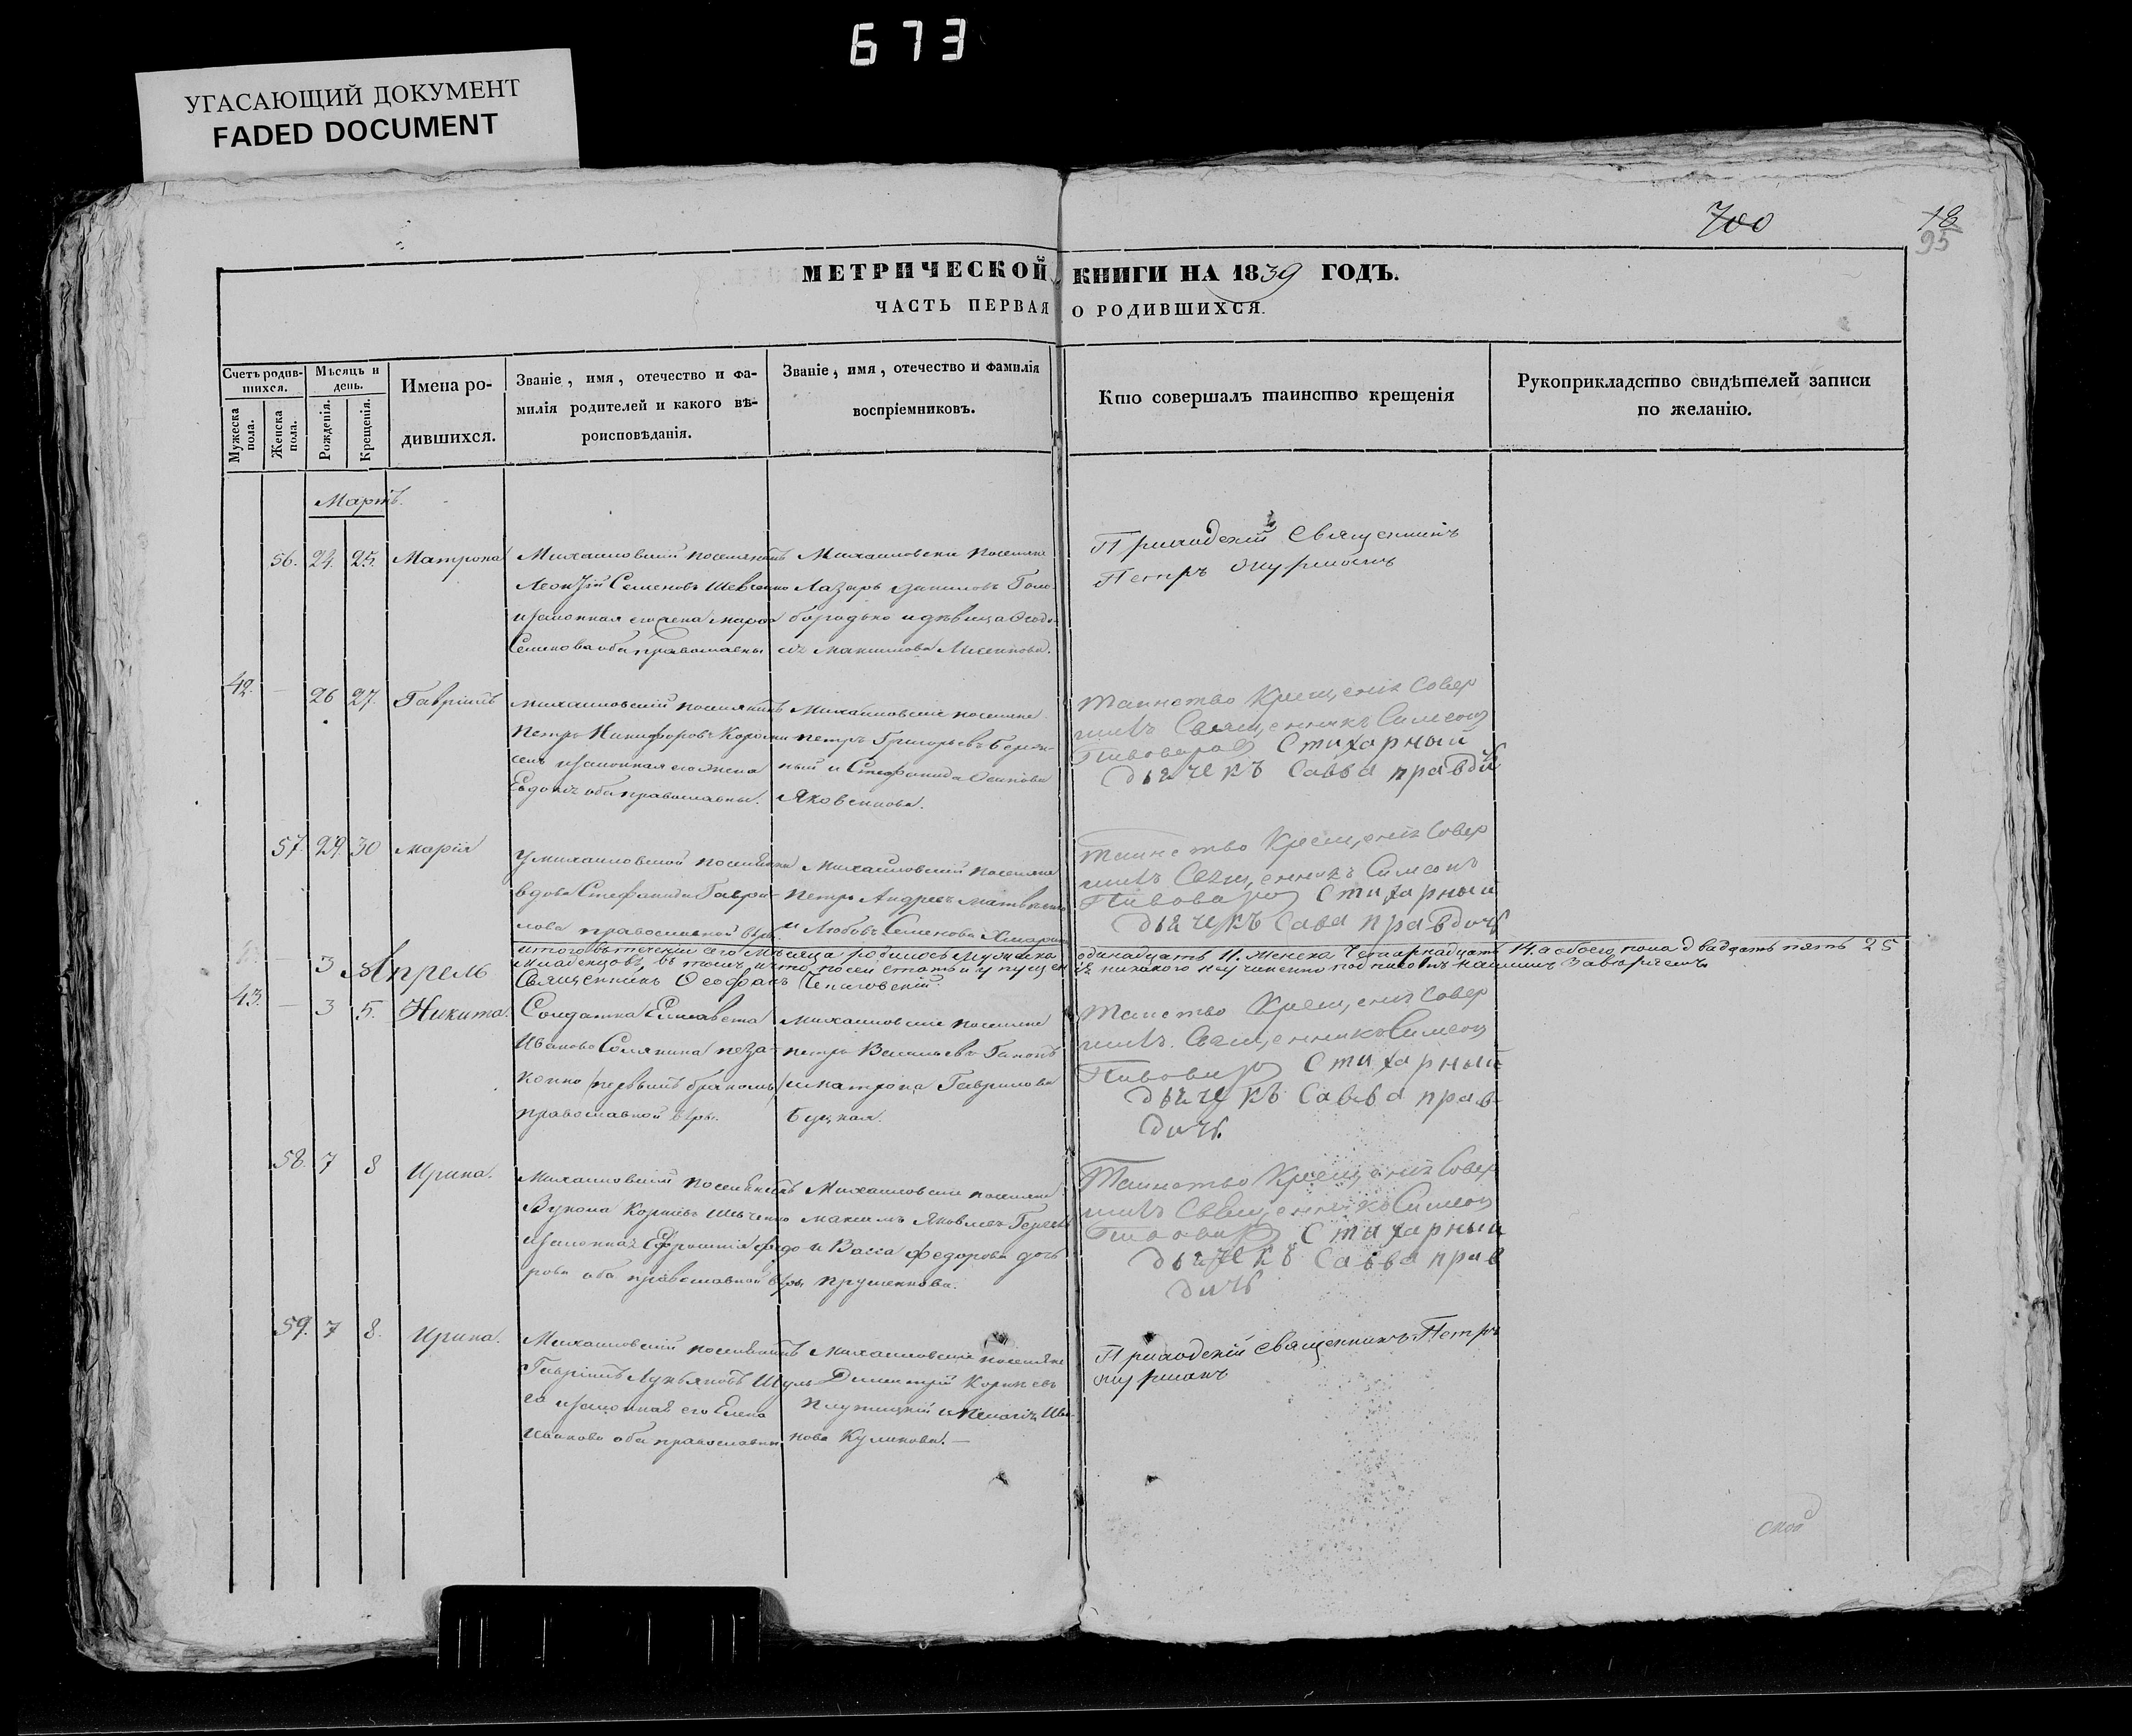 673
УГАСАЮЩИЙ ДОКУМЕНТ
FADED DOCUMENT
700
18
95
МЕТРИЧЕСКОЙ КНИГИ НА 1839 ГОДЪ.
ЧАСТЬ ПЕРВАЯ О РОДИВШИХСЯ.
Счетъ родив-
шихся.
Мужеска
пола.
Женска
пола.
Мѣсяцъ и
день.
Рожденія.
Крещенія.
Имена ро-
дившихся.
Званіе, имя, отечество и фа-
милія родителей и какого вѣ-
роисповѣданія.
Званіе, имя, отечество и фамилія
воспріемниковъ.
Кто совершалъ таинство крещенія
Рукоприкладство свидѣтелей записи
по желанію.
Мартъ.
56. 24. 25. Матрона
Михаиловскій поселянинъ
Леонтій Семеновъ Шевченко
и законная его жена Марфа
Семенова оба православны
Михаиловски поселяне
Лазарь Даниловъ Голо-
бородько и дѣвица Феодо-
сія Максимова
Приходскій Священникъ
Петръ
42. — 26 27. Гавріилъ
Михаиловскій поселянинъ
Петръ Никифоровъ
и законная его жена
Евдокія оба православны.
Михаиловскіе поселяне
Петръ Григорьевъ
и Стефанида Осипова
Яковенкова.
Таинство Крещенія Совер
шилъ Священникъ Симеонъ
Пивоваровъ Стихарный
дьячекъ Савва
57. 29. 30 Марія
У михаиловской поселянки
вдовы Стефаниды Гаври-
лова православной вѣры.
Михаиловскій поселяне
Петръ Андреевъ Матвѣенко
и Любовь Семенова
Таинство Крещенія Совер
шилъ Священникъ Симеонъ
Пивоваровъ Стихарный
дьячекъ Сава правдичъ
Итого въ теченіи сего Мѣсяца родилось Мужеска одинадцать 11. Женска Четырнадцать 14. а обоего пола двадцать пять 25
Младенцовъ, въ томъ что посей статьи упущен
ія никакого неучиненно подписомъ нашимъ Завѣряемъ
Священникъ Феофанъ
3 Апрель
43. — 3 5. Никита.
Солдатка Елисавета
Иванова Солякина неза-
конно /первымъ бракомъ/
православной вѣры.
Михаиловскіе поселяне
Петръ Васильевъ Гапонъ
и Матрона Гаврилова
Буцкая.
Таинство Крещенія Совер
шилъ Священникъ Симеонъ
Пивоваровъ Стихарный
дьячекъ Савва прав-
дичъ.
58. 7 8 Ирина.
Михаиловскій поселянинъ
Вукола Корнѣевъ Шевченко
и законная Ефросинія Федо
рова оба православной вѣры
Михаиловскіе поселяне
Максимъ Яковлевъ
и Васса Федорова дочь
Прушенкова.
Таинство Крещенія Совер
шилъ Священникъ Симеонъ
Пивоваровъ Стихарный
дьячекъ Савва прав
дичъ
59. 7 8. Ирина.
Михаиловскій поселянинъ
Гавріилъ Лукьяновъ Шуль
га и законная его Елена
Иванова оба православны
Михаиловскіе поселяне
Димитрій Корнѣевъ
и Пелагія Ива-
нова Куликова.—
Приходскій Священникъ Петръ